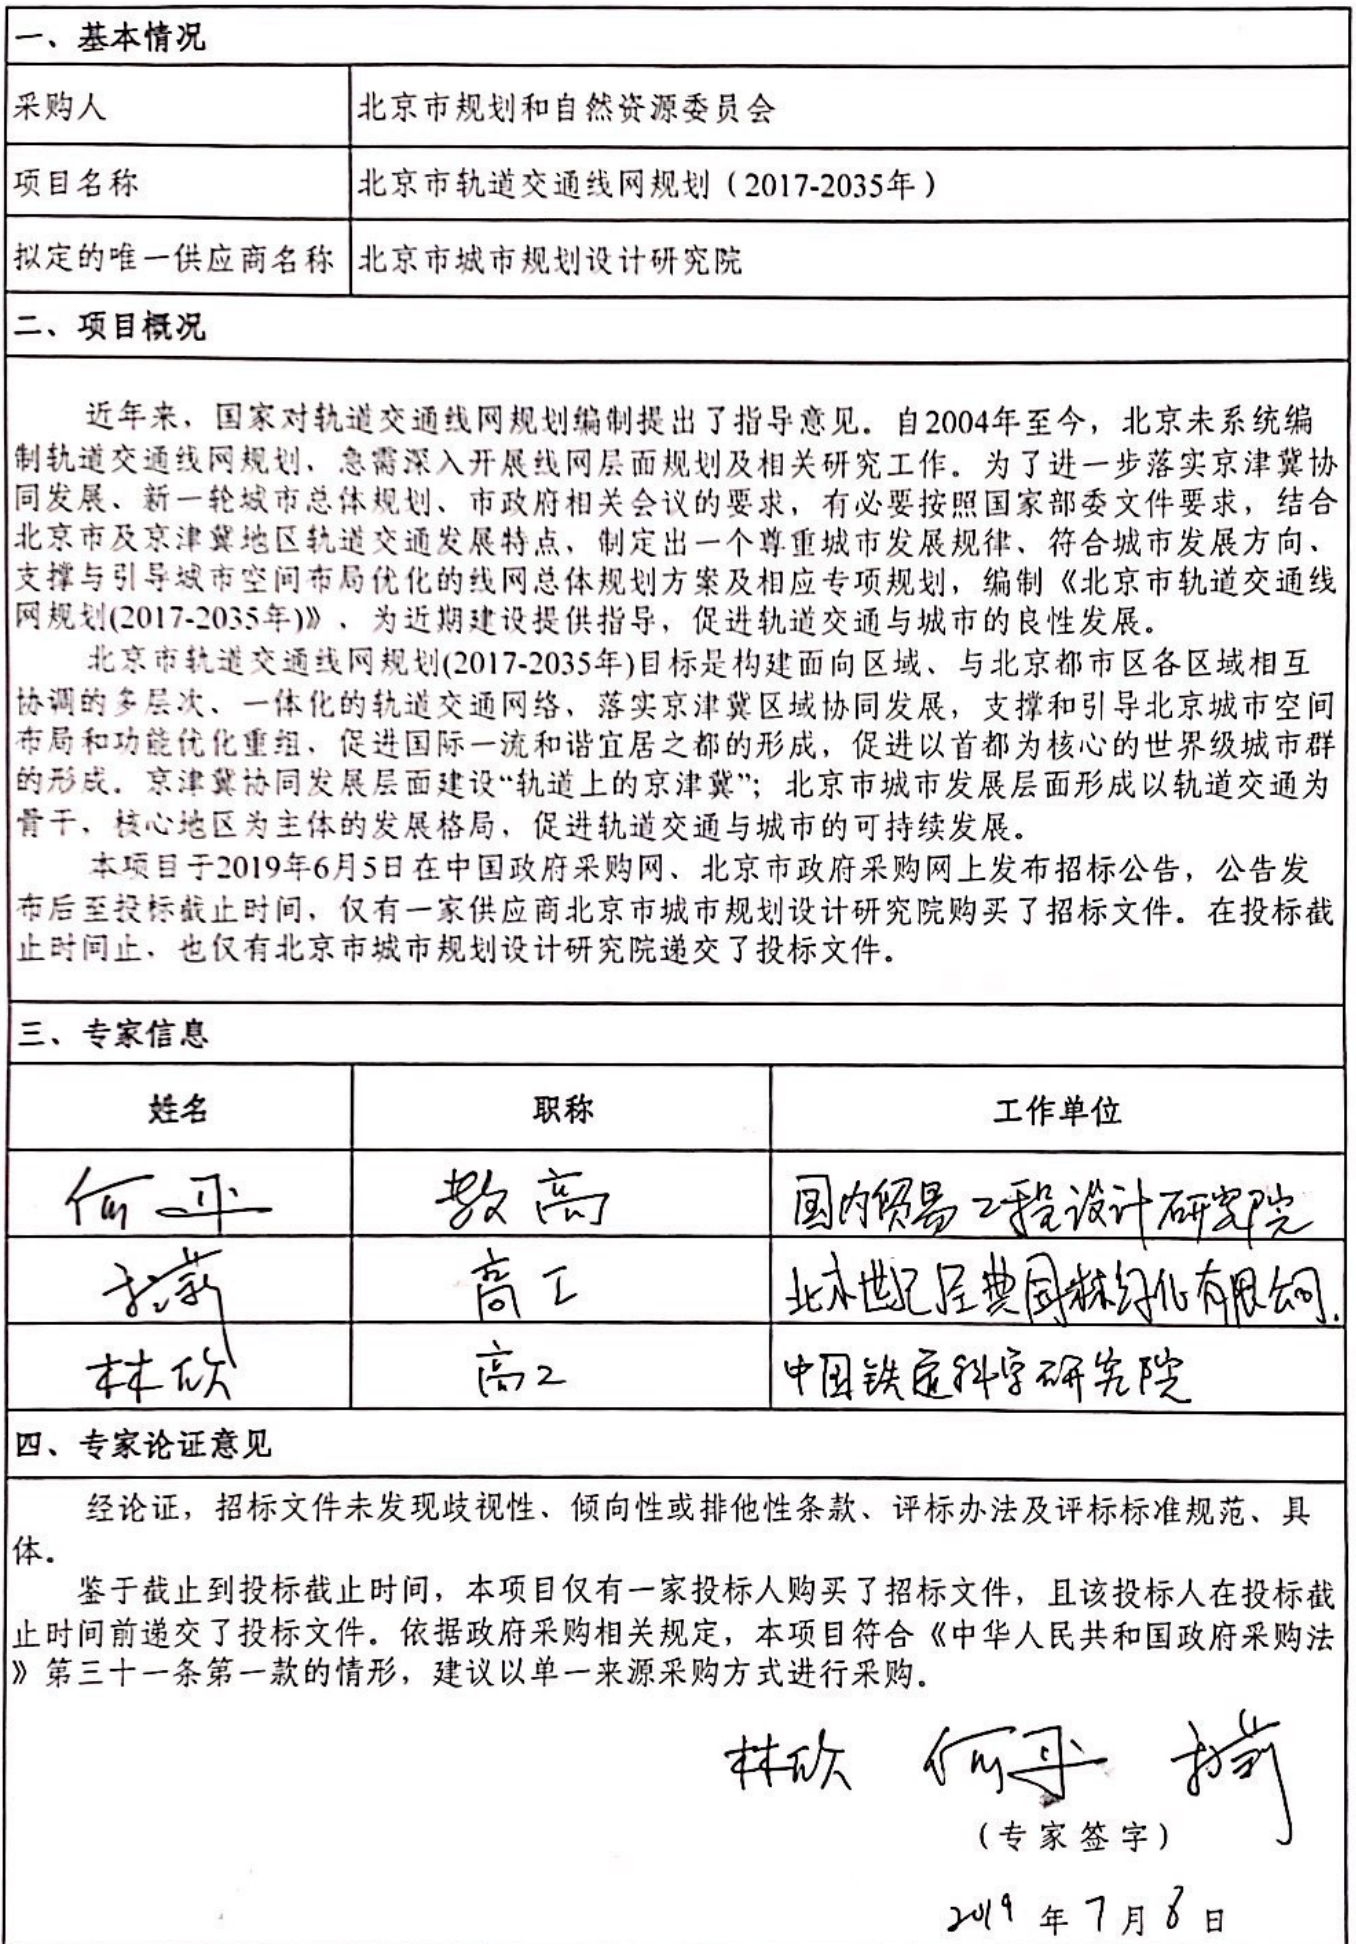 一、基本情况
采购人 北京市规划和自然资源委员会
项目名称 北京市轨道交通线网规划（2017-2035年）
拟定的唯一供应商名称 北京市城市规划设计研究院
二、项目概况
近年来，国家对轨道交通线网规划编制提出了指导意见。自2004年至今，北京未系统编
制轨道交通线网规划，急需深入开展线网层面规划及相关研究工作。为了进一步落实京津冀协
同发展、新一轮城市总体规划、市政府相关会议的要求，有必要按照国家部委文件要求，结合
北京市及京津冀地区轨道交通发展特点，制定出一个尊重城市发展规律、符合城市发展方向、
支撑与引导城市空间布局优化的线网总体规划方案及相应专项规划，编制《北京市轨道交通线
网规划(2017-2035年)》，为近期建设提供指导，促进轨道交通与城市的良性发展。
北京市轨道交通线网规划(2017-2035年)目标是构建面向区域、与北京都市区各区域相互
协调的多层次、一体化的轨道交通网络，落实京津冀区域协同发展，支撑和引导北京城市空间
布局和功能优化重组，促进国际一流和谐宜居之都的形成，促进以首都为核心的世界级城市群
的形成。京津冀协同发展层面建设“轨道上的京津冀”；北京市城市发展层面形成以轨道交通为
骨干，核心地区为主体的发展格局，促进轨道交通与城市的可持续发展。
本项目于2019年6月5日在中国政府采购网、北京市政府采购网上发布招标公告，公告发
布后至投标截止时间，仅有一家供应商北京市城市规划设计研究院购买了招标文件。在投标截
止时间止，也仅有北京市城市规划设计研究院递交了投标文件。
三、专家信息
姓名 职称 工作单位
何平 教高 国内贸易工程设计研究院
高工 北京世纪经典园林绿化有限公司.
林欣 高工 中国铁道科学研究院
四、专家论证意见
经论证，招标文件未发现歧视性、倾向性或排他性条款、评标办法及评标标准规范、具
体。
鉴于截止到投标截止时间，本项目仅有一家投标人购买了招标文件，且该投标人在投标截
止时间前递交了投标文件。依据政府采购相关规定，本项目符合《中华人民共和国政府采购法
》第三十一条第一款的情形，建议以单一来源采购方式进行采购。
林欣 何平
（专家签字）
2019年7月8日